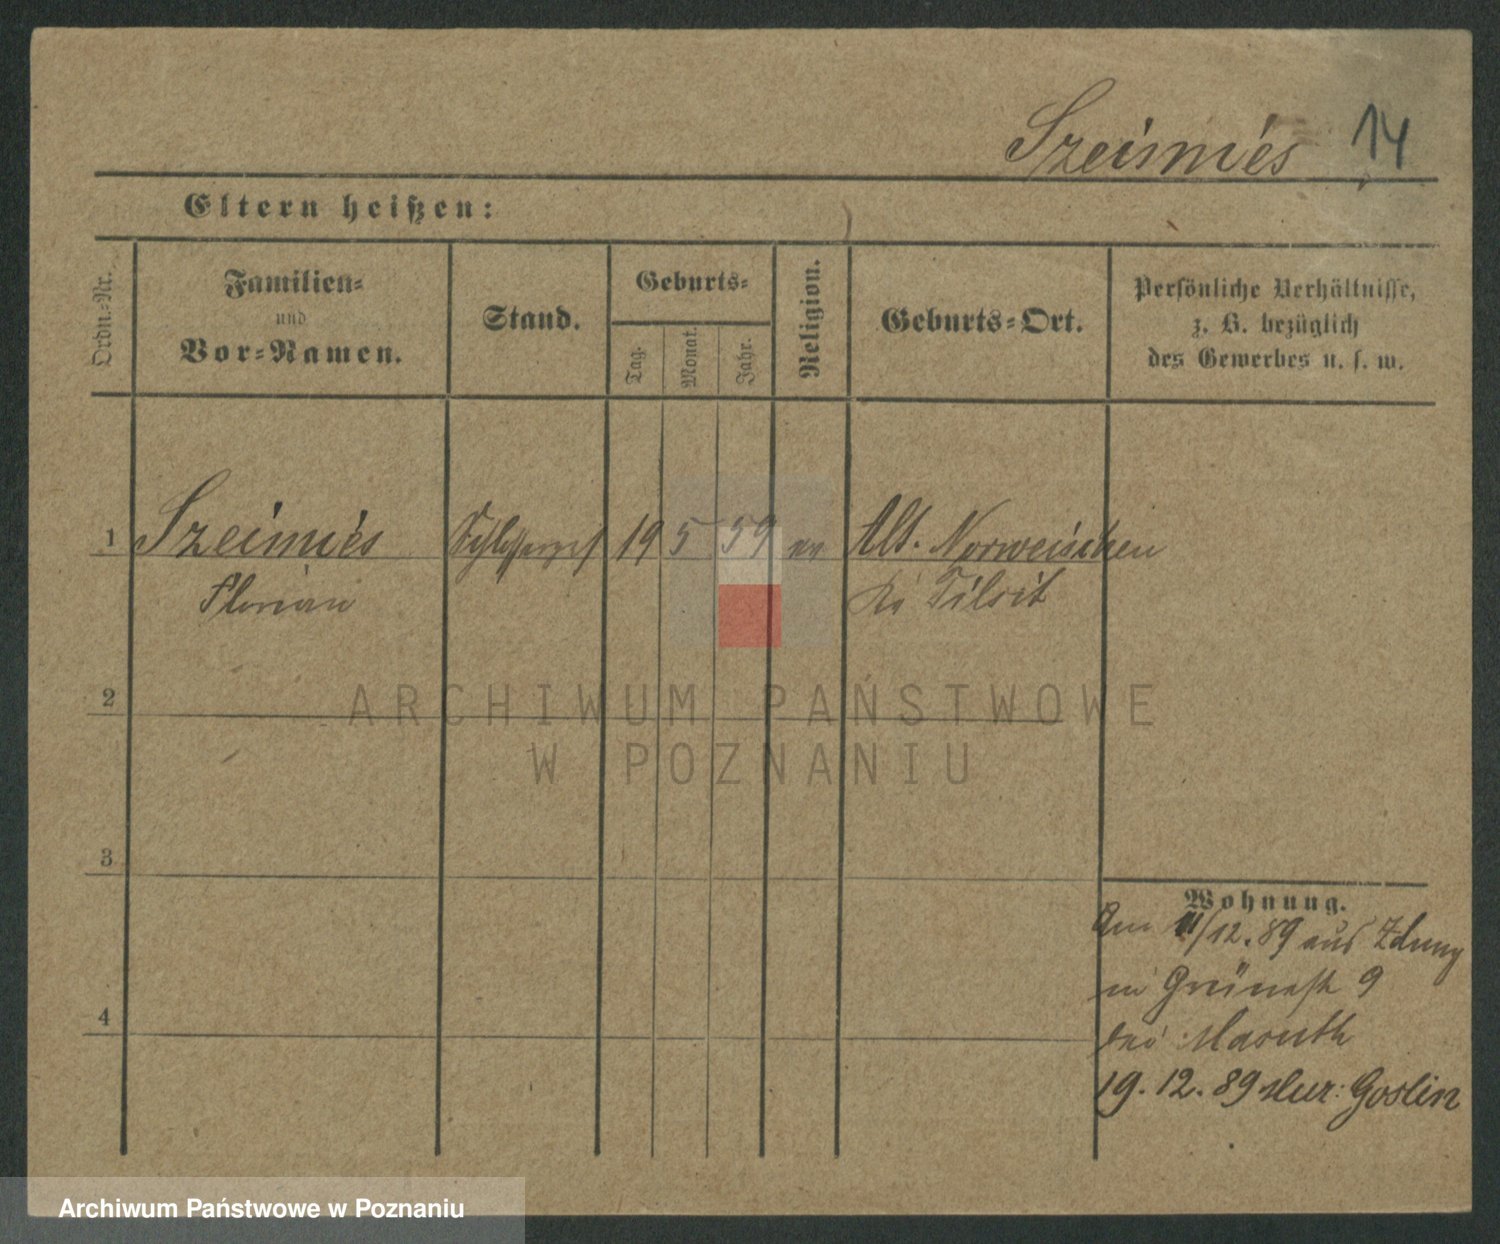 Szeimiés 14
Eltern heißen:
Ordn.-Nr.
Familien-
und
Vor-Namen.
Stand.
Geburts-
Tag.
Monat.
Jahr.
Religion.
Geburts-Ort.
Persönliche Verhältnisse,
z. B. bezüglich
des Gewerbes u. s. w.
1 Szeimiés 19 5 59 ev Alt. Norweischen
Florian Kr Tilsit
2
ARCHIWUM PAŃSTWOWE
W POZNANIU
3
Wohnung.
11/12.89 aus Zduny
in Grünestr 9
bei Masuth
4
19.12.89 Mur: Goslin
Archiwum Państwowe w Poznaniu